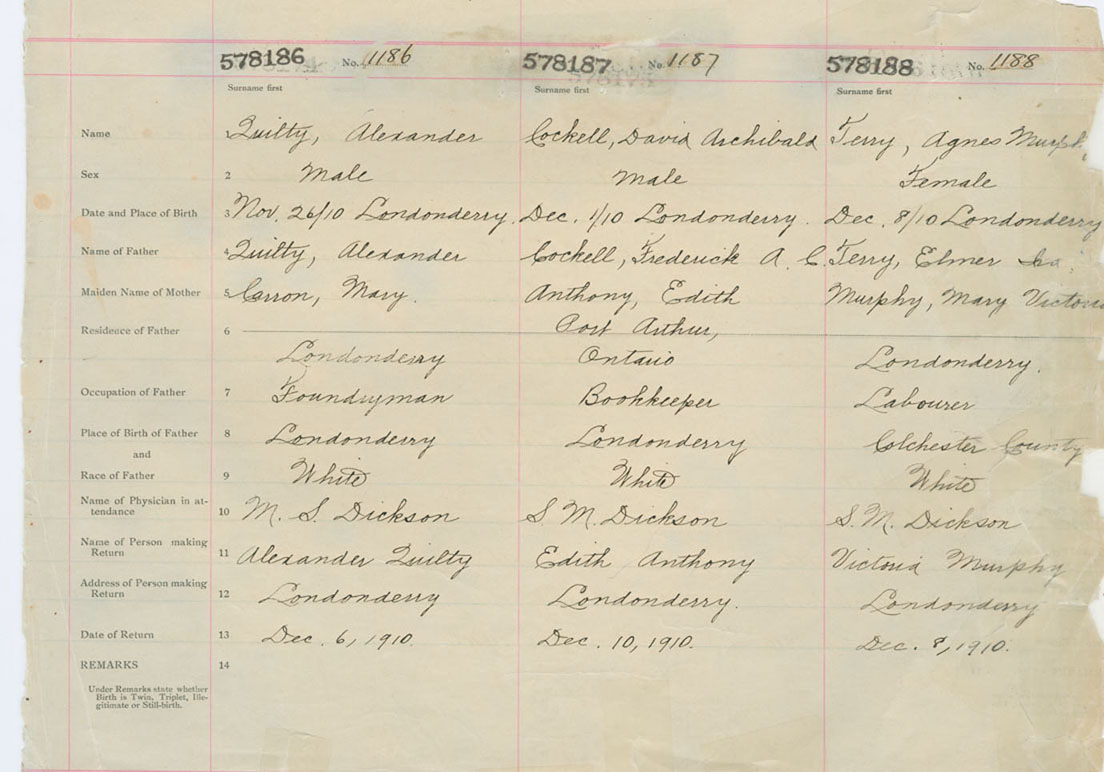 578186 No. 1186 578187 No. 1187 578188 No. 1188
Surname first Surname first Surname first
Name 1 Quilty, Alexander Cockell, David Archibald Terry, Agnes
Sex 2 Male Male Female
Date and Place of Birth 3 Nov. 26/10 Londonderry. Dec. 1/10 Londonderry. Dec. 8/10 Londonderry
Name of Father 4 Quilty, Alexander Cockell, Frederick A. C. Terry, Elmer
Maiden Name of Mother 5 Carron, Mary. Anthony, Edith Murphy, Mary
Residence of Father 6 Port Arthur,
Londonderry Ontario Londonderry.
Occupation of Father 7 Foundryman Bookkeeper Labourer
Place of Birth of Father 8 Londonderry Londonderry Colchester County
and
Race of Father 9 White White White
Name of Physician in at-
tendance 10 M. S. Dickson S M. Dickson S. M. Dickson
Name of Person making
Return 11 Alexander Quilty Edith Anthony Victoria Murphy
Address of Person making
Return 12 Londonderry Londonderry. Londonderry
Date of Return 13 Dec. 6, 1910. Dec. 10, 1910. Dec. 8, 1910.
REMARKS 14
Under Remarks state whether
Birth is Twin, Triplet, Ille-
gitimate or Still-birth.